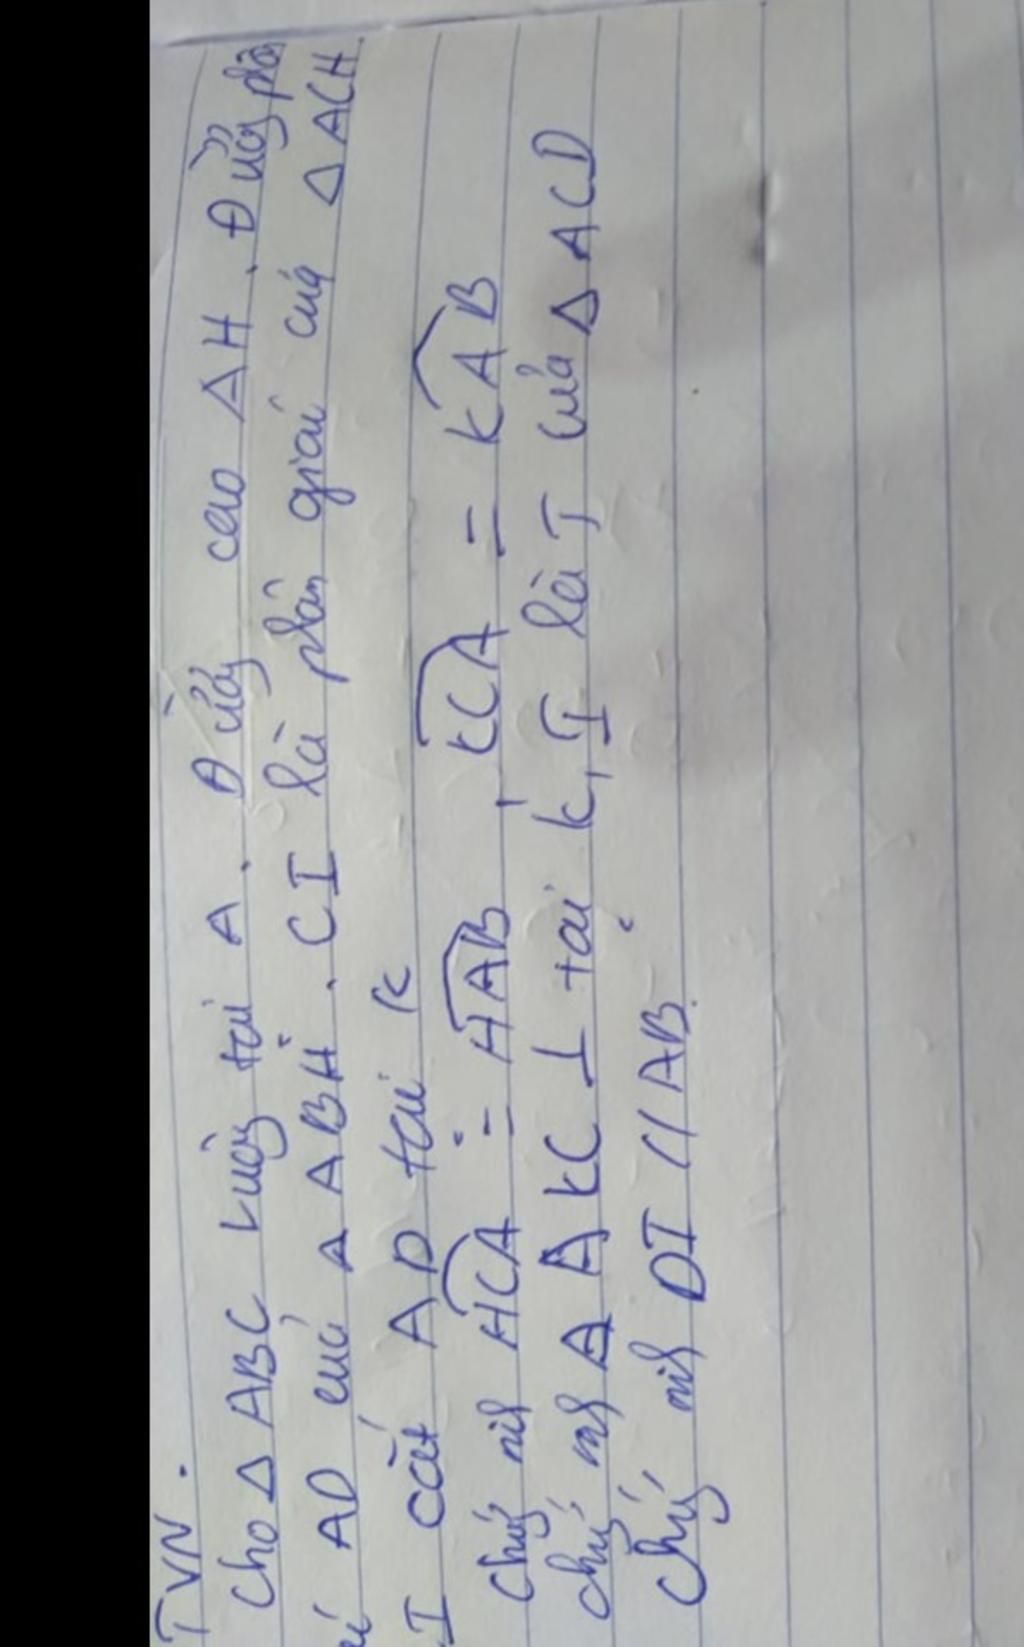 TVN.
Cho Δ ABC vuông tại A. Đường cao AH. Đường phân
AD của Δ ABH. CI là phân giác của Δ ACH.
I cắt AD tại K
Chứng mih HCA = HAB, KCA = KAB
chứng mih Δ AKC ⊥ tại K, I là T của Δ ACD
Chứng mih DI // AB.